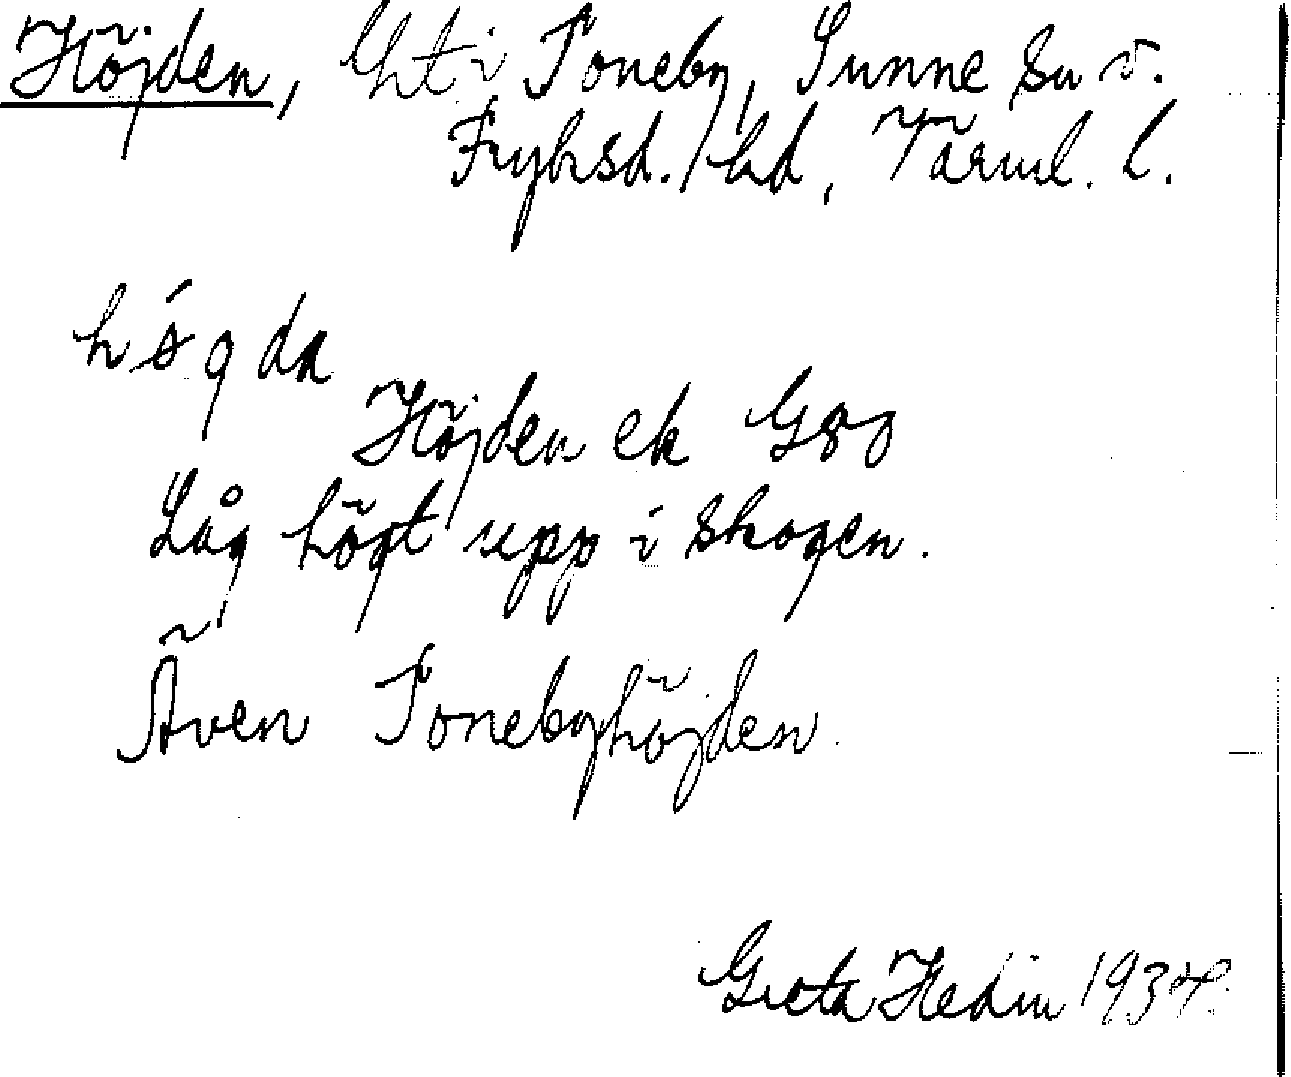 Höjden, lht i Toneby, Sunne sn v.
Fryksd. hd, Värml. l.
hǿgda
Höjden ek G80
Låg högt upp i skogen.
Även Tonebyhöjden.
Greta Hedin 1934.